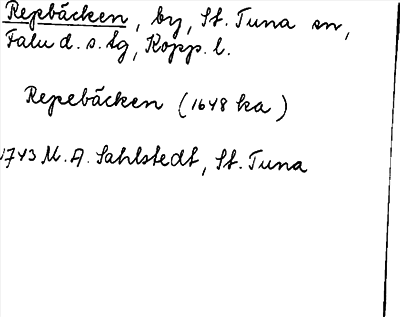 Repbäcken, by, St. Tuna sn,
Falu d.s. tg, Kopp. l.
Repebäcken (1648 ka)
1743 M. A. Sahlstedt, St. Tuna